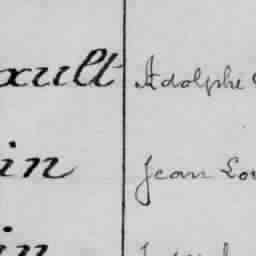 xult Adolphe
in Jean Lou
in